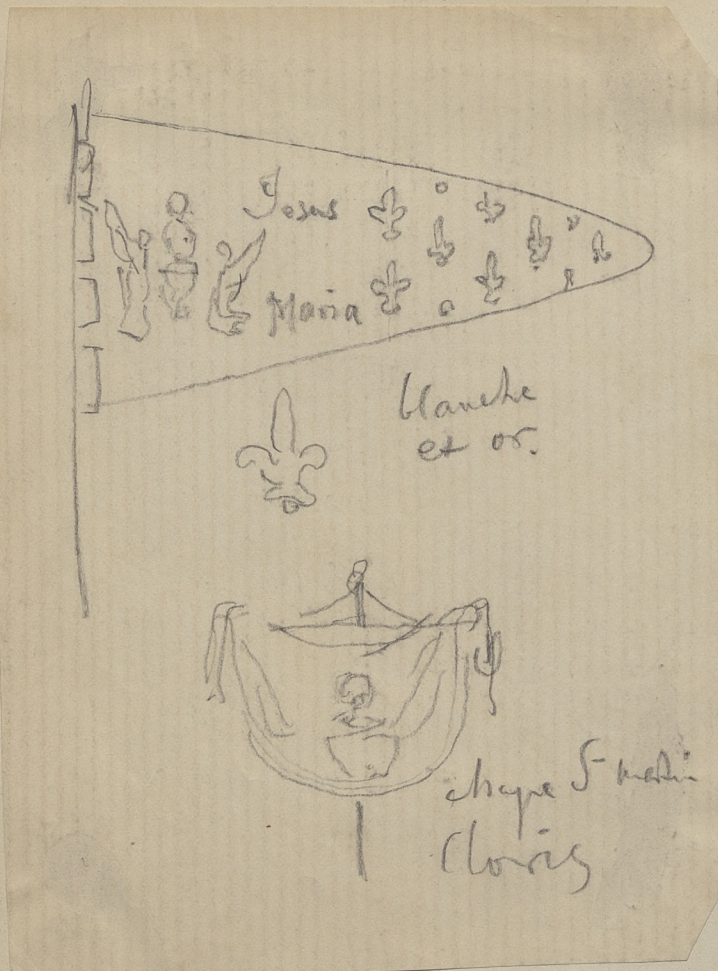 Jesus
Maria
blanche
et or.
chape St martin
Clovis